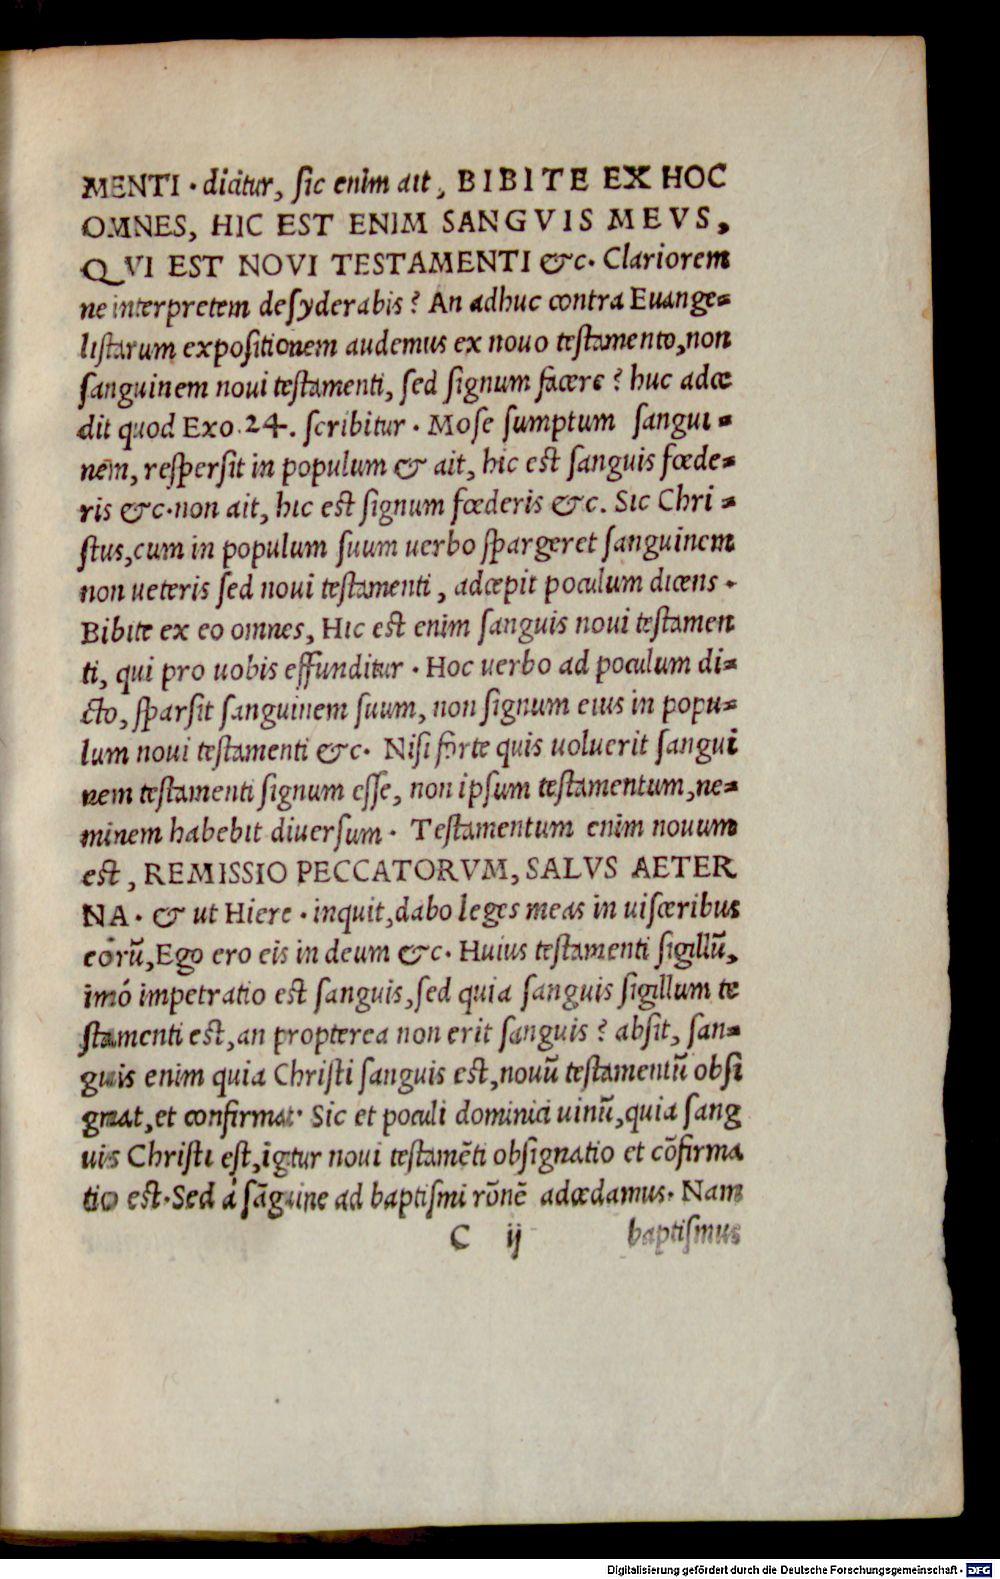 MENTI. dicitur, sic enim ait, BIBITE EX HOC
OMNES, HIC EST ENIM SANGVIS MEVS,
QVI EST NOVI TESTAMENTI &c. Clariorem
ne interpretem desyderabis? An adhuc contra Euange=
listarum expositionem audemus ex nouo testamento, non
sanguinem noui testamenti, sed signum facere? huc adce
dit quod Exo. 24. scribitur. Mose sumptum sangui=
nem, respersit in populum & ait, hic est sanguis fœde=
ris &c. non ait, hic est signum fœderis &c. Sic Chri=
stus, cum in populum suum uerbo spargeret sanguinem
non ueteris sed noui testamenti, adcepit poculum dicens.
Bibite ex eo omnes, Hic est enim sanguis noui testamen
ti, qui pro uobis effunditur. Hoc uerbo ad poculum di=
cto, sparsit sanguinem suum, non signum eius in popu=
lum noui testamenti &c. Nisi forte quis uoluerit sangui
nem testamenti signum esse, non ipsum testamentum, ne=
minem habebit diuersum. Testamentum enim nouum
est, REMISSIO PECCATORVM, SALVS AETER
NA. & ut Hiere. inquit, dabo leges meas in uisceribus
eorũ, Ego ero eis in deum &c. Huius testamenti sigillũ,
imó impetratio est sanguis, sed quia sanguis sigillum te
stamenti est, an propterea non erit sanguis? absit, san=
guis enim quia Christi sanguis est, nouũ testamentũ obsi
gnat, et confirmat. Sic et poculi dominici uinũ, quia sang
uis Christi est, igitur noui testamẽti obsignatio et cõfirma
tio est. Sed á sãguine ad baptismi rõnẽ adcedamus. Nam
C ij baptismus
Digitalisierung gefördert durch die Deutsche Forschungsgemeinschaft - DFG